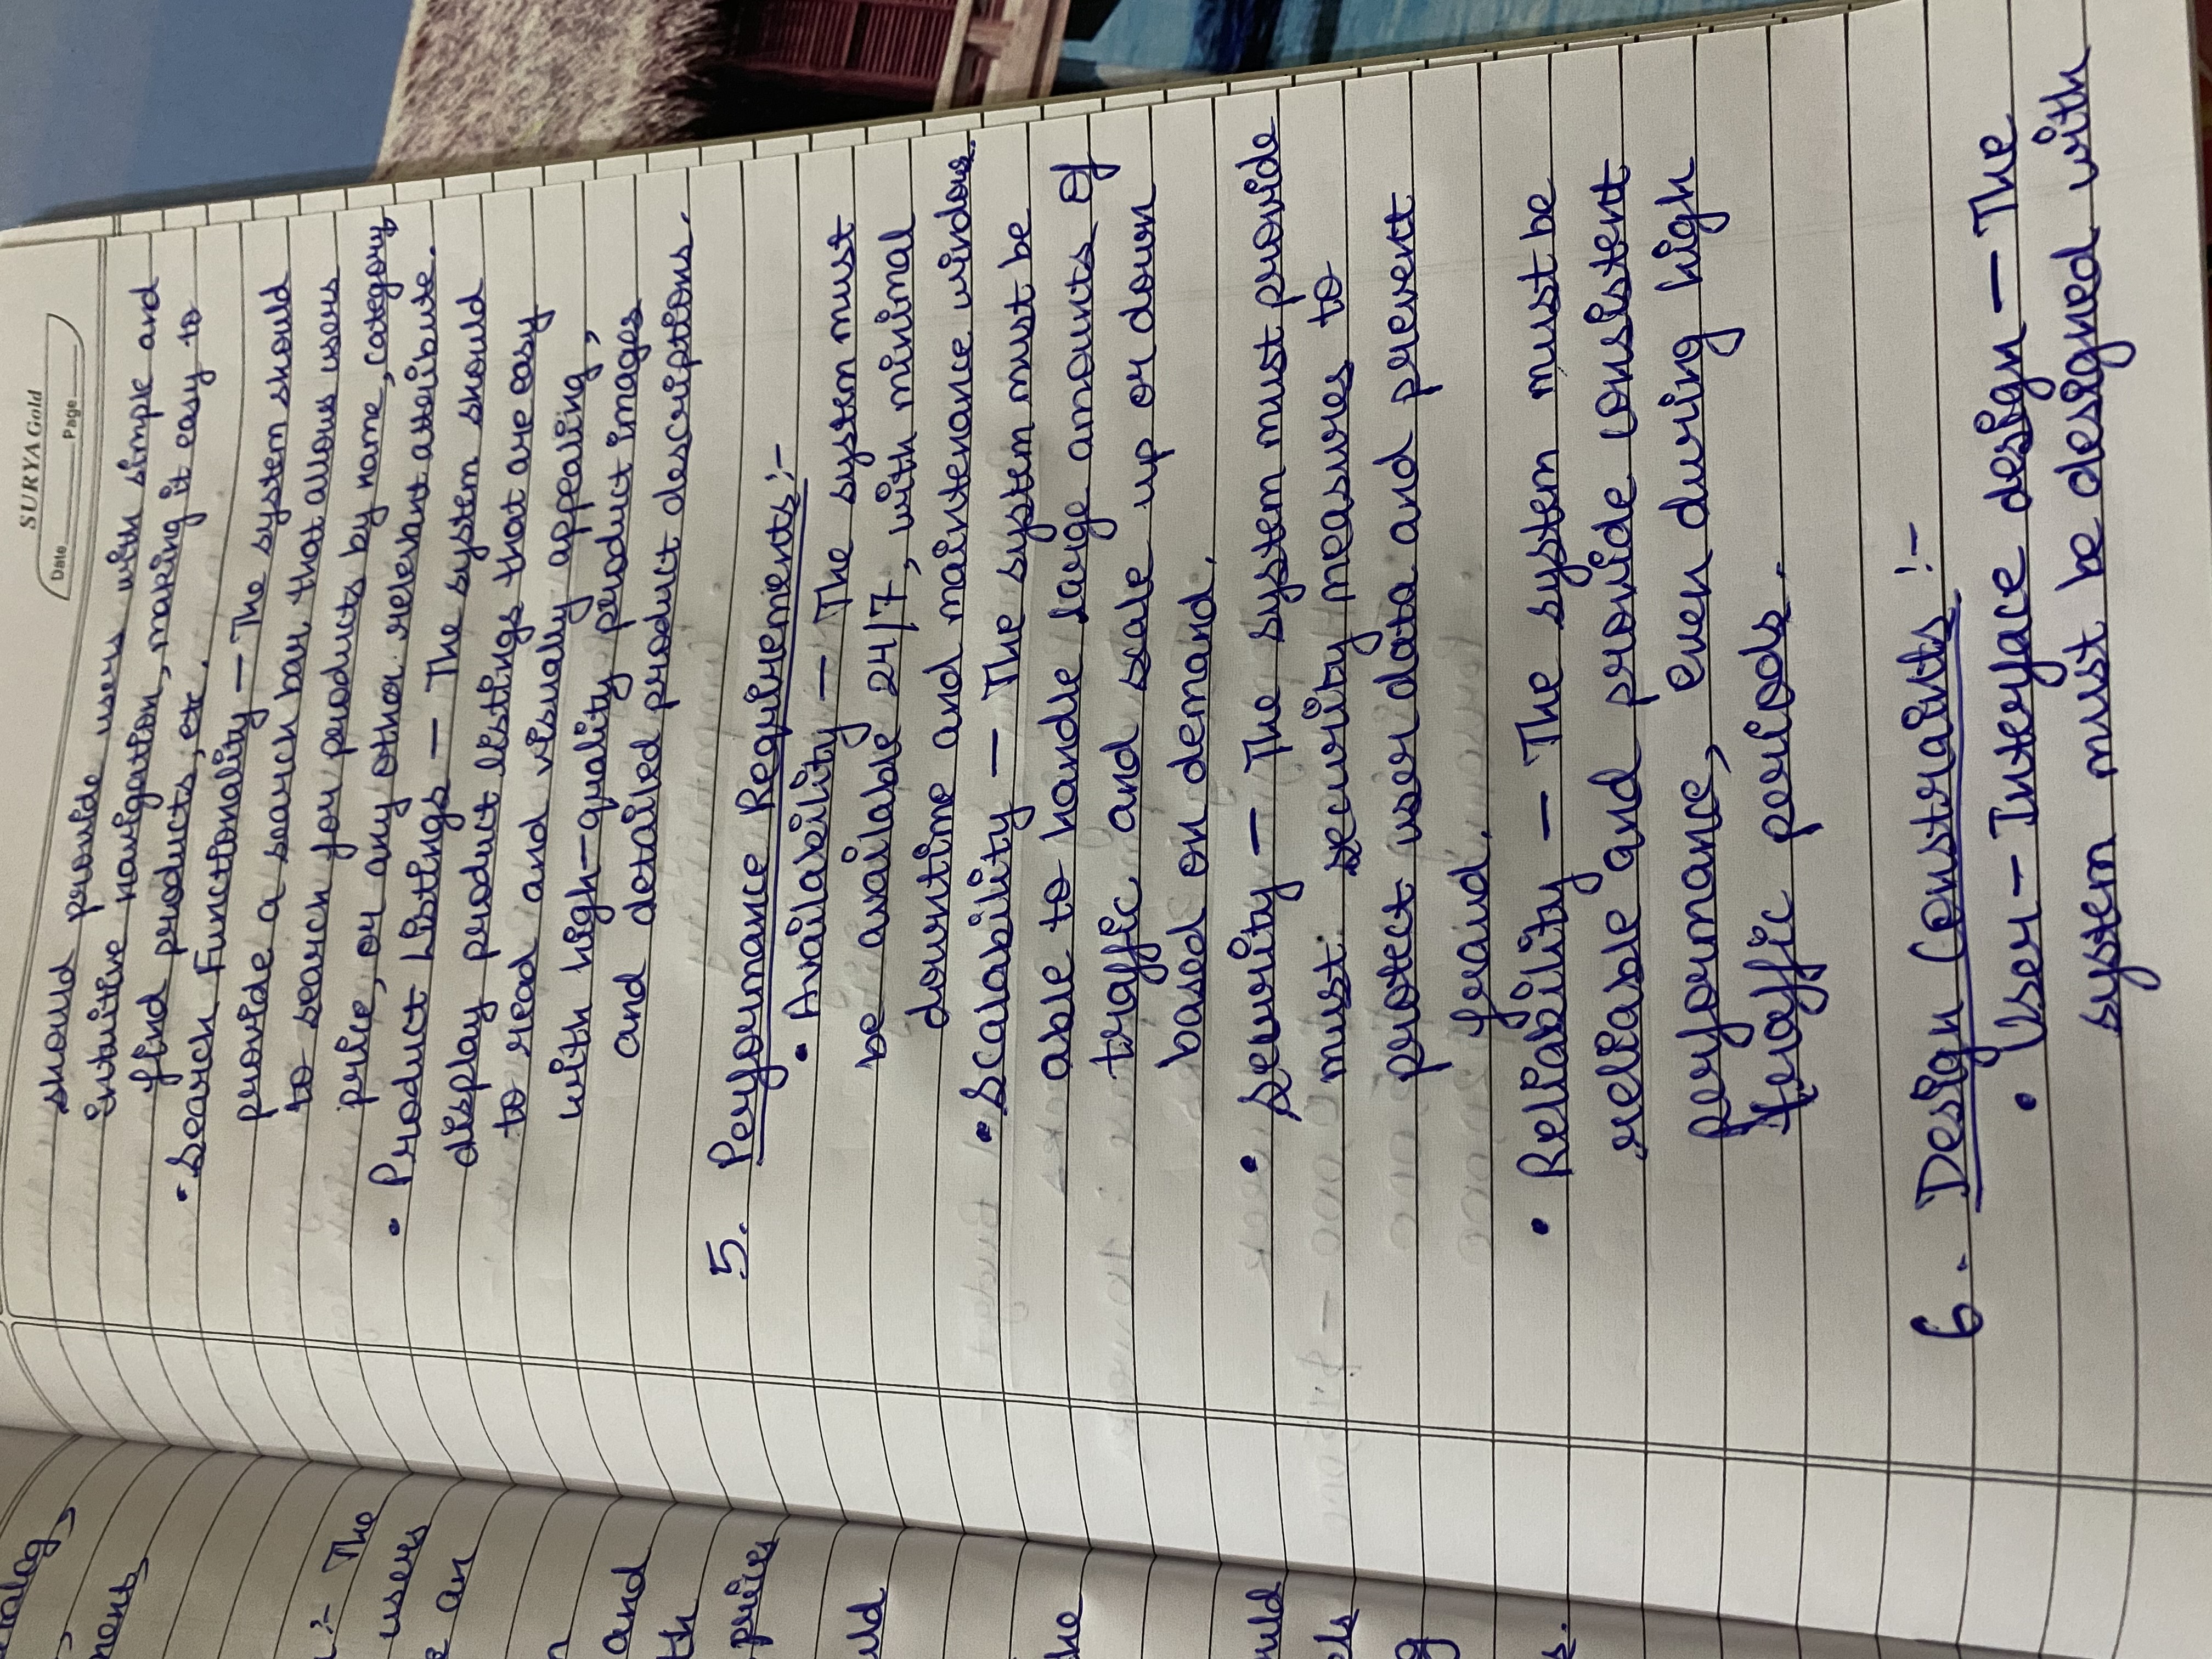 talog,
ment,
:- The
users
an
and
th
prices
uld
he
uld
els
g
s.
SURYA Gold
Date Page
should provide users with simple and
intuitive navigation, making it easy to
find products, etc.
• Search Functionality — The system should
provide a search bar that allows users
to search for products by name, category,
price, or any other relevant attribute.
• Product Listings — The system should
display product listings that are easy
to read and visually appealing,
with high-quality product images
and detailed product descriptions.
5. Performance Requirements :-
• Availability — The system must
be available 24/7, with minimal
downtime and maintenance windows.
• Scalability — The system must be
able to handle large amounts of
traffic and scale up or down
based on demand.
• Security — The system must provide
must security measures to
protect user data and prevent
fraud.
• Reliability — The system must be
reliable and provide consistent
performance, even during high
traffic periods.
6. Design Constraints :-
• User-Interface design — The
system must be designed with